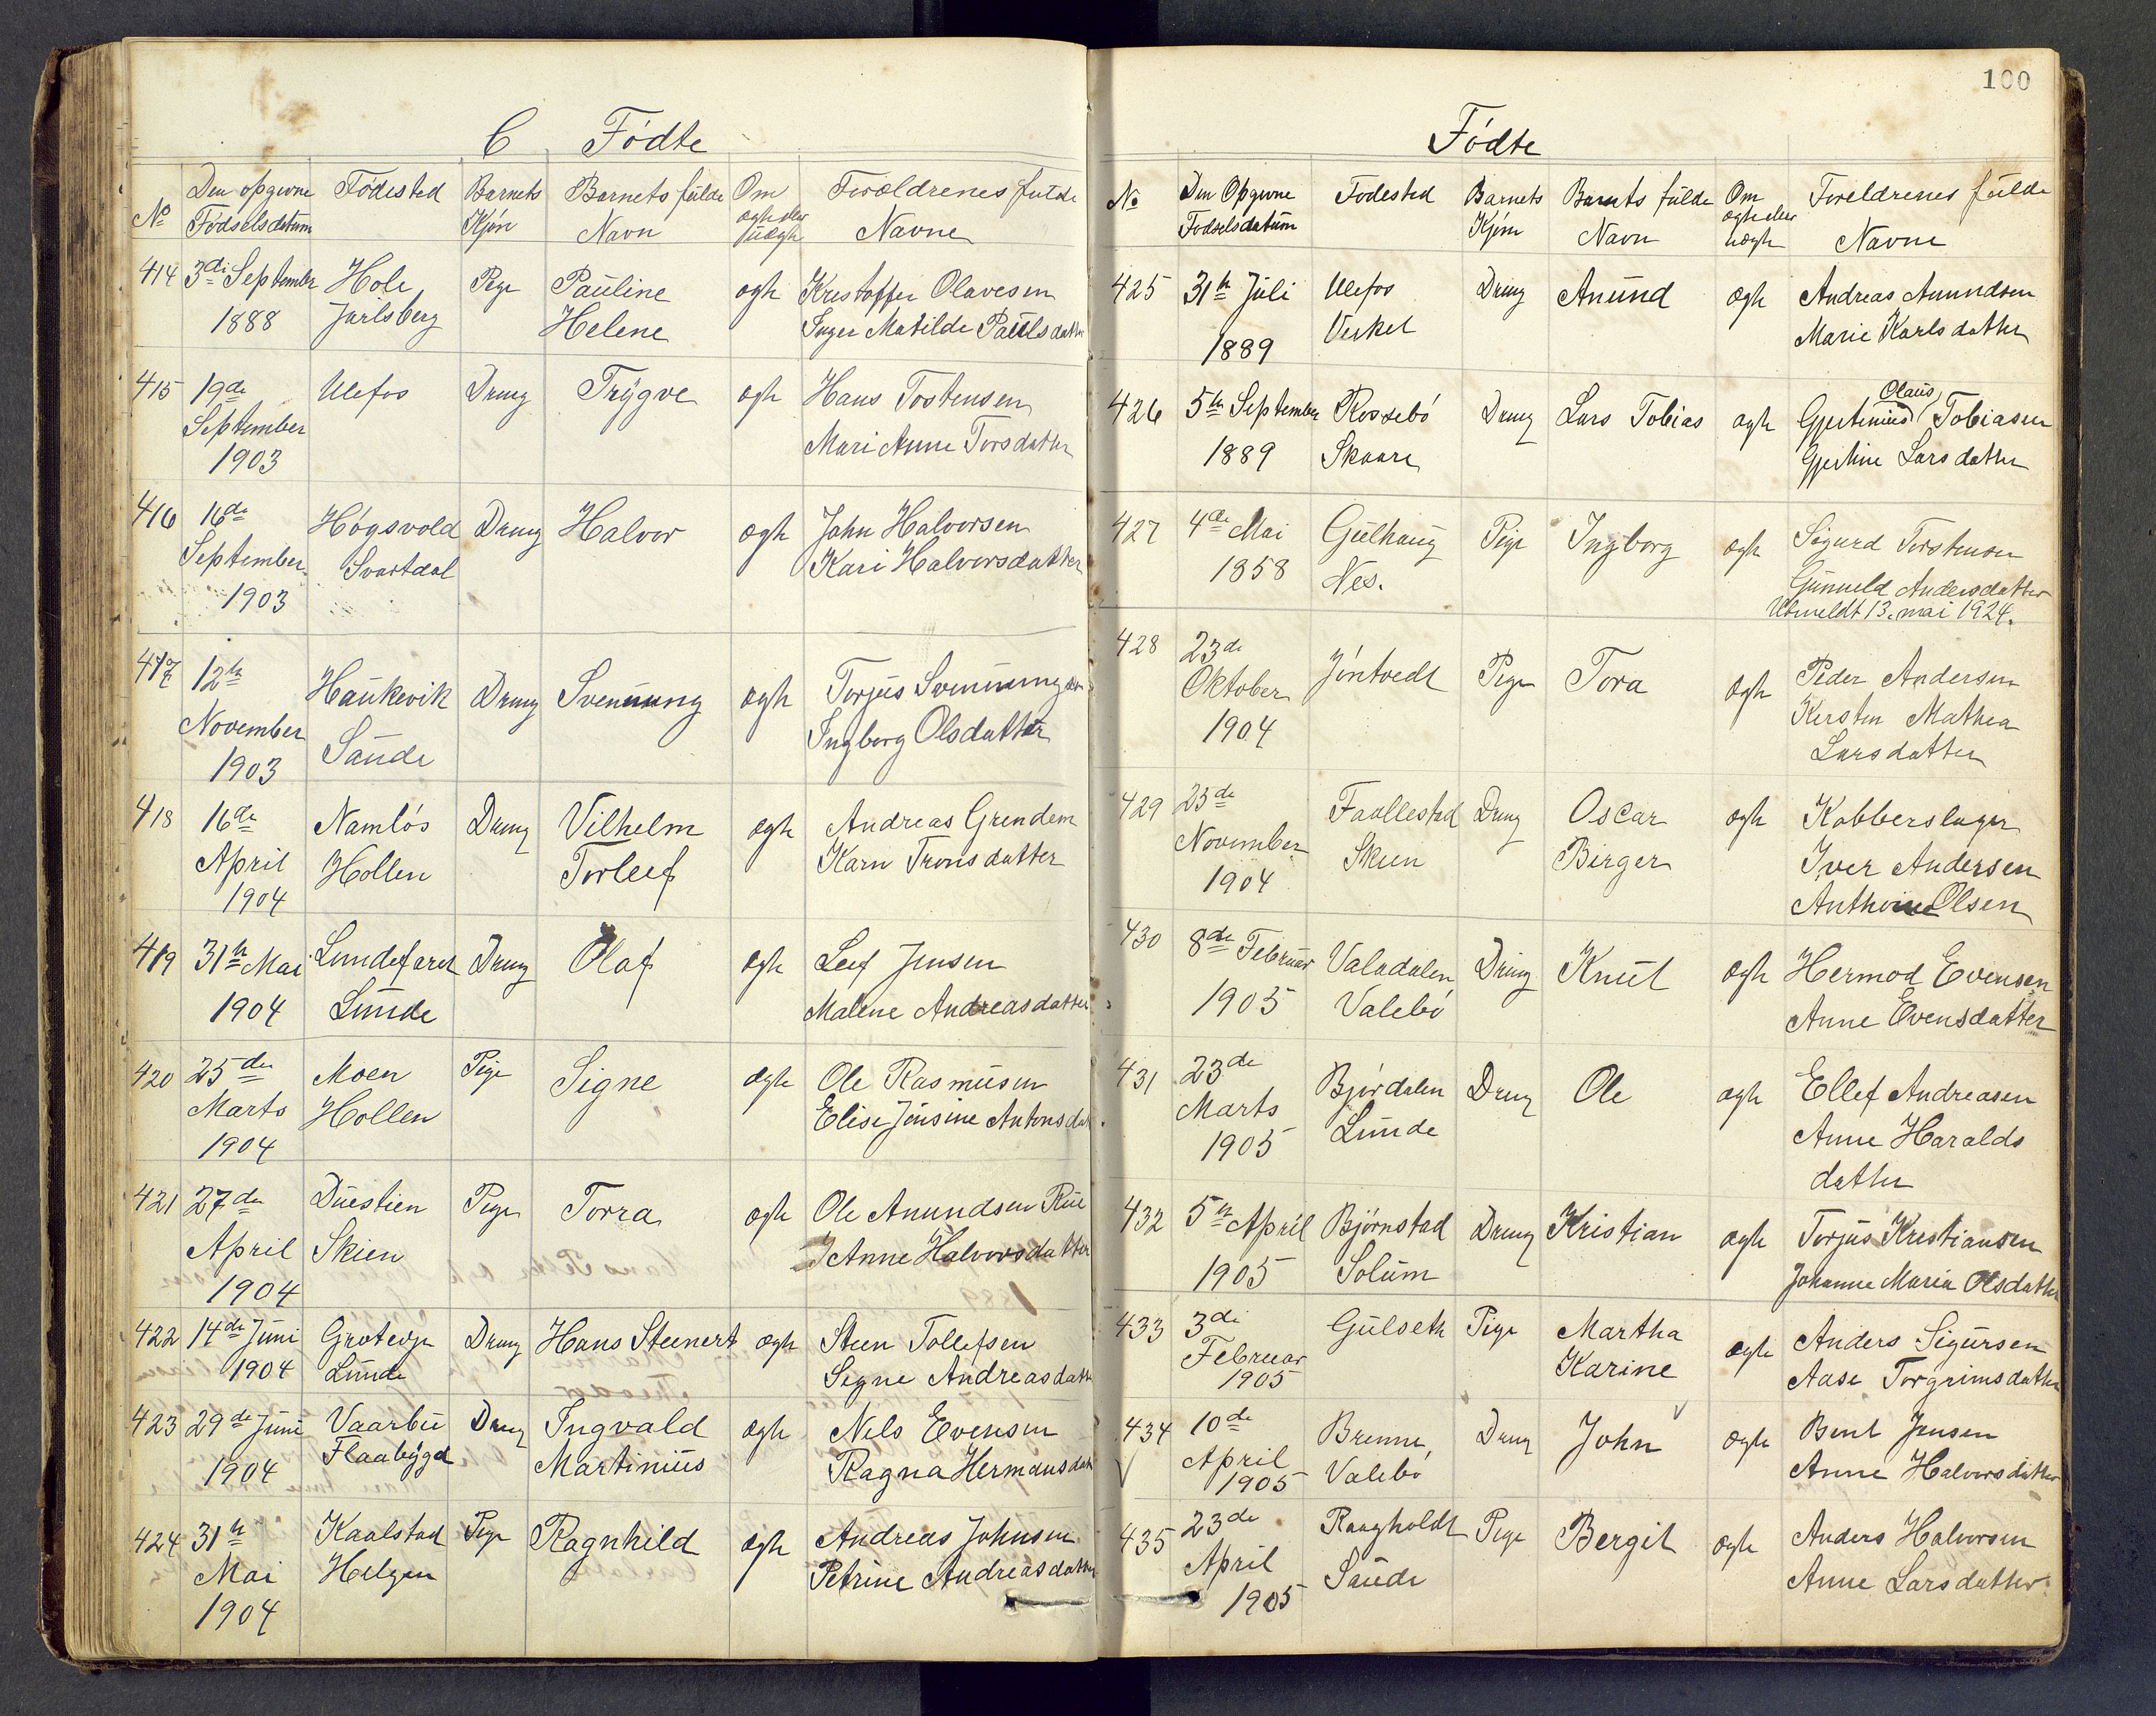 C Fødte
No Den opgivne Fødselsdatum Fødested Barnets Kjøn Barnets fulde Navn Om ægte eller uægte Forældrenes fulde Navne
414 3di September Hole Pige Pauline ægte Kristoffer Olavesen
1888 Jarlsberg Helene Inger Matilde Paulsdatter
415 19de Ulefos Dreng Trygve ægte Hans Tostensen
September Mari Anne Torsdatter
1903
416 16de Høgsvold Dreng Halvor ægte John Halvorsen
September Svartdal Kari Halvorsdatter
1903
417 12te Haukevik Dreng Svennung ægte Torjus Svennungsen
November Saude Ingborg Olsdatter
1903
418 16de Namløs Dreng Vilhelm ægte Andreas Grendem
April Hollen Torleif Karn Tronsdatter
1904
419 31te Mai Lundefaret Dreng Olaf ægte Leif Jensen
1904 Lunde Malene Andreasdatter
420 25de Moen Pige Signe ægte Ole Rasmusen
Marts Hollen Elise Jensine Antonsdat
1904
421 27de Duestien Pige Torra ægte Ole Anundsen Rue
April Skien Anne Halvorsdatter
1904
422 14de Juni Groteoje Dreng Hans Steenert ægte Steen Tollefsen
1904 Lunde Signe Andreasdatt
423 29de Juni Vaarbu Dreng Ingvald ægte Nels Evensen
1904 Flaabygd Martinius Ragna Hermansdat
424 31te Kaalstad Pige Ragnhild ægte Andreas Johnsen
Mai Helgen Petrine Andreasdatter
1904
100
Fødte
No Den Opgivne Fødselsdatum Fødested Barnets Kjøn Barnets fulde Navn Om ægte eller uægte Foreldrenes fulde Navne
425 31te Juli Ulefos Dreng Anund ægte Andreas Anundsen
1889 Verket Marie Karlsdatter
Olaus
426 5te September Rossebø Dreng Lars Tobias ægte Gjertinius Tobiasen
1889 Skaare Gjertine Larsdatter
427 4de Mai Gulhaug Pige Ingborg ægte Sigurd Torstensen
1858 Nes. Gunneld Andersdatter
Utmeldt 13. mai 1924.
428 23de Jøntvedt Pige Tora ægte Peder Andersen
Oktober Kirsten Mathea
1904 Larsdatter
429 23de Faallestad Dreng Oscar ægte Kobberslager
November Skien Birger Iver Andersen
1904 Anthoine Olsen
430 8de Februar Valadalen Dreng Knut ægte Hermod Evensen
1905 Valebø Anne Evensdatter
431 23de Bjørdalen Dreng Ole ægte Ellef Andreasen
Marts Lunde Anne Haralds
1905 datter
432 5te April Bjørnstad Dreng Kristian ægte Torjus Kristiansen
1905 Solum Johanne Maria Olsdatter
433 3di Gulseth Pige Martha ægte Anders Sigursen
Februar Karine Aase Torgrimsdatter
1905
434 10de Brenne, Dreng John ægte Bent Jensen
April Valebø Anne Halvorsdatter
1905
435 23de Raugholdt Pige Bergit ægte Anders Halvorsen
April Saude Anne Larsdatter
1905